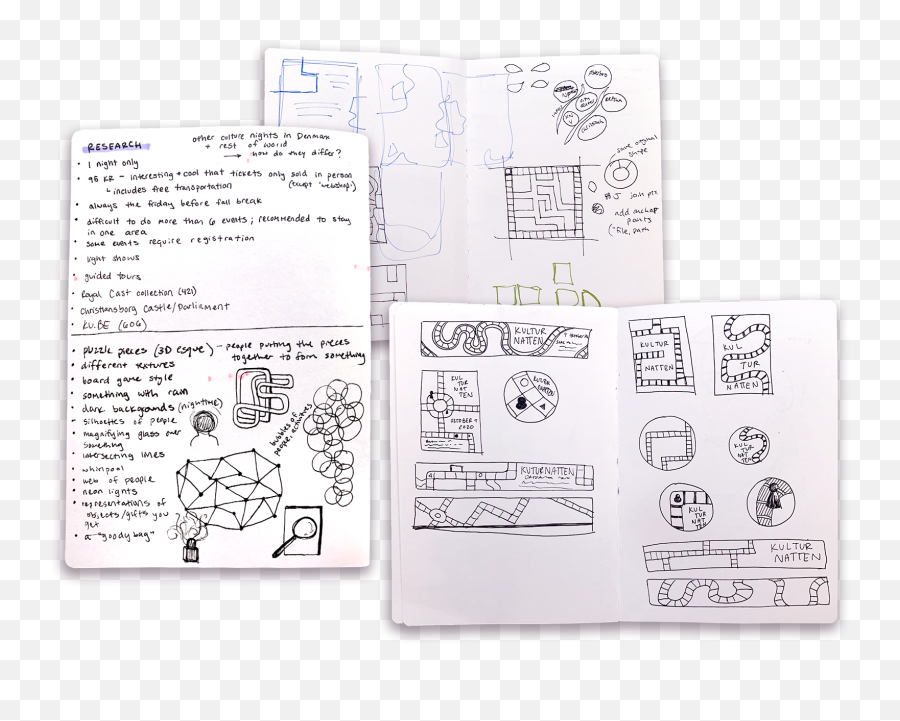 RESEARCH
other culture nights in Denmark
+ rest of world
→ how do they differ?
• 1 night only
• 95 KR - interesting + cool that tickets only sold in person
↳ includes free transportation
(except "webshop")
• always the friday before fall break
• difficult to do more than 6 events; recommended to stay
in one area
• some events require registration
• light shows
• guided tours
• Royal Cast collection (421)
• Christiansborg Castle/Parliament
• KU.BE (606)
• puzzle pieces (3D esque) - people putting the pieces
together to form something
• different textures
• board game style
• something with rain
• dark backgrounds (nighttime)
- silhouettes of people
• magnifying glass over
something
• intersecting lines
• whirlpool
• web of people
• neon lights
• representations of
objects/gifts you
get
• a "goody bag"
bubbles of
people, activities
same original
shape
join pts
add anchor
points
KULTUR
NATTEN
KUL
TUR
NAT
TEN
OCTOBER 9
2020
KULTUR
NATTEN
KUTURNATTEN
KULTUR
NATTEN
KUL
TUR
NATTEN
KUL
TUR
NAT
TEN
KUL
TUR
NAT
TEN
KULTUR
NATTEN